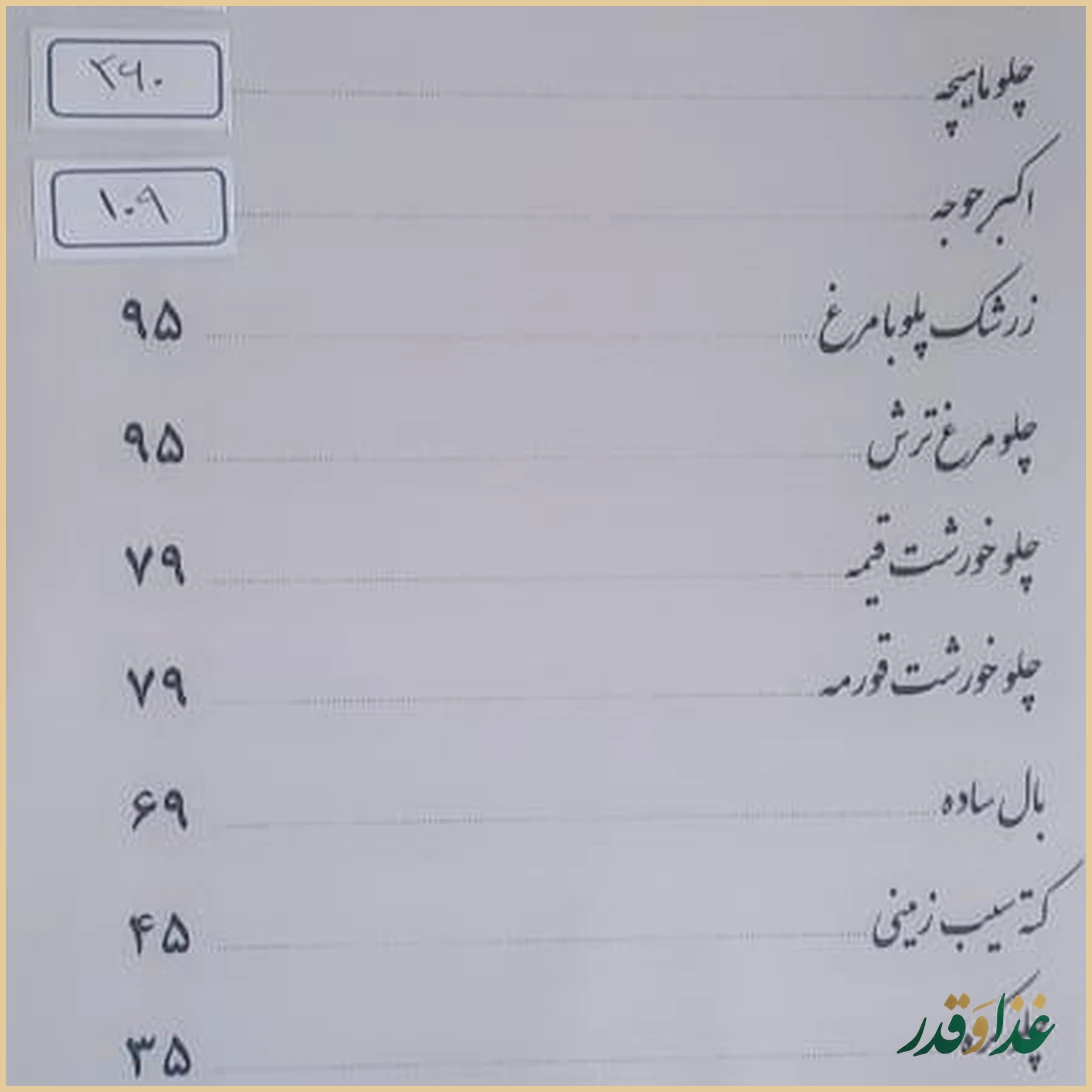 چلو ماهیچه ۲۹۰
اکبر جوجه ۱۰۹
زرشک پلو با مرغ ۹۵
چلو مرغ ترش ۹۵
چلو خورشت قیمه ۷۹
چلو خورشت قورمه ۷۹
بال ساده ۶۹
کته سیب زمینی ۴۵
چلو ۳۵
غذا و قدر